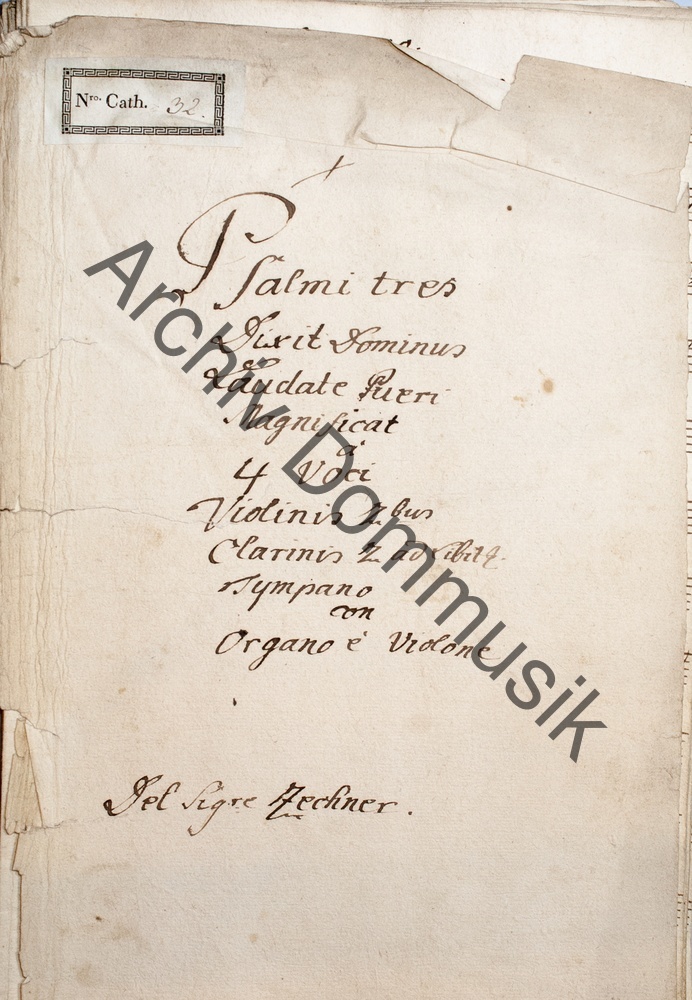 Nro. Cath. 32.
Psalmi tres
Dixit Dominus
Laudate Pueri
Magnificat
à
4 Voci
Violinis 2 bus
Clarinis 2 ad libit
Tympano
con
Organo è Violone
Del Sigre Zechner.
Archiv Dommusik